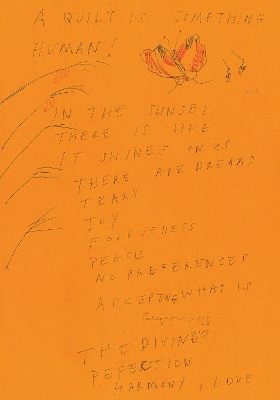 A QUILT IS SOMETHING
HUMAN!
IN THE SUNSET
THERE IS LIFE
IT SHINES ON US
THERE ARE DREAMS
TEARS
JOY
FORGIVENESS
PEACE
NO PREFERENCES
ACCEPTING WHAT IS
THE DIVINE
PERFECTION
HARMONY, LOVE